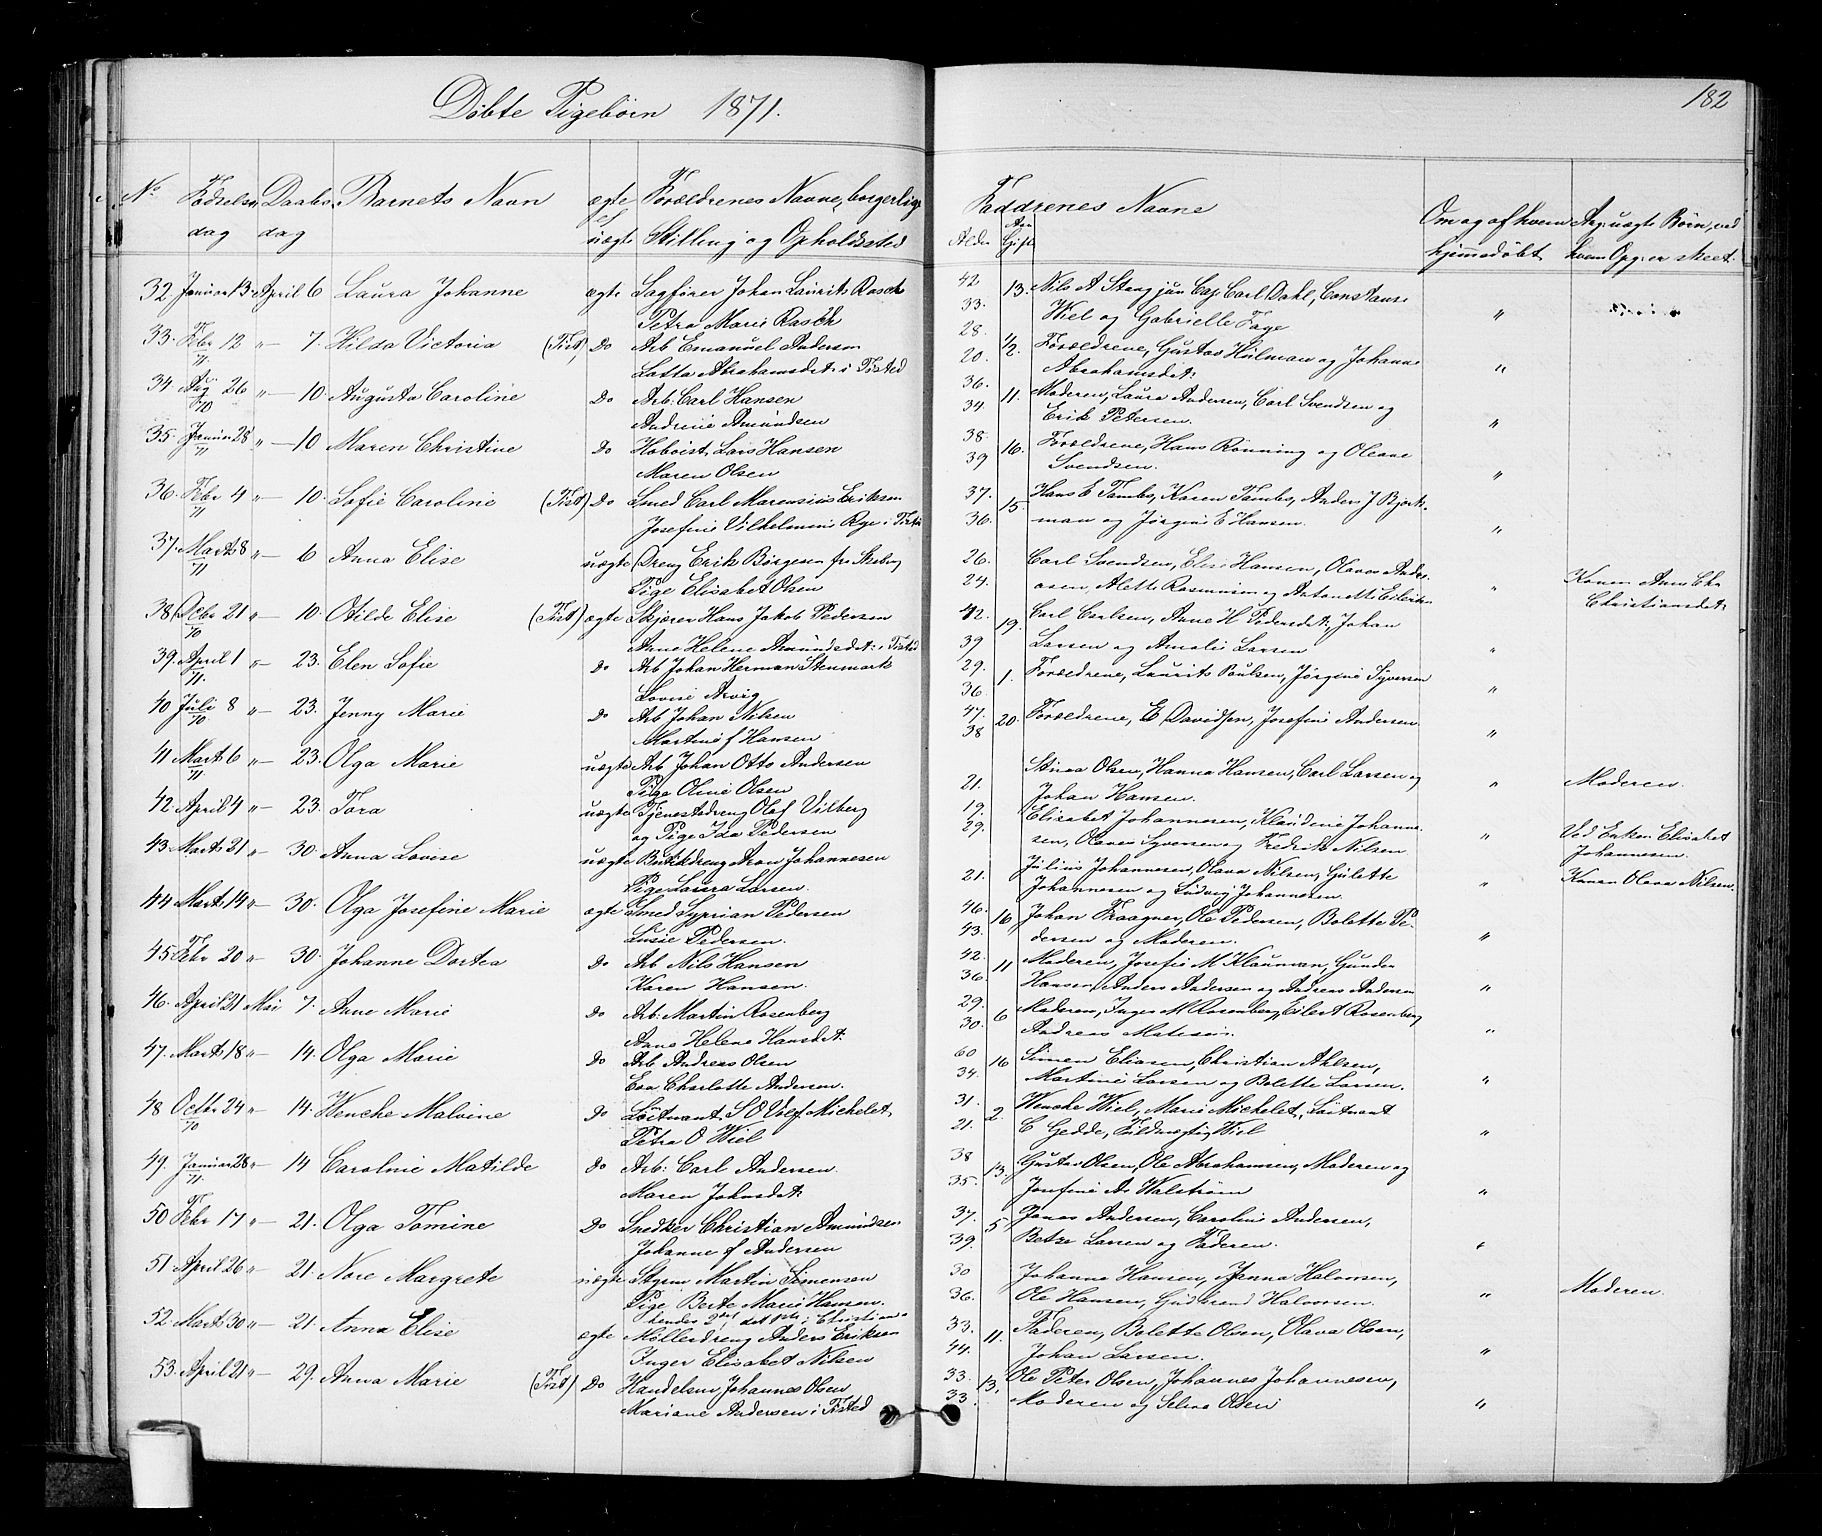 Döbte Pigebörn 1871.
182
No Födsels Daabs Barnets Navn ægte Forældrenes Navne, borgerlige
dag dag uægte Stilling og Opholdssted
Faddrenes Navne
Alder Gift
Om og af hvem Ang: uægte Börn, ved
hjemmedöbt. hvem Opg: er skeet.
32. Januar 13 April 6 Laura Johanne ægte Sagförer Johan Laurits Rasch
Petra Marie Rasch
42 13. Nils A Stang jun Cap Carl Dahl, Constanse
33. Wiel og Gabrielle Faye "
33. Febr 12 " 7. Hilda Victoria (Tist) Do Arb Emanuel Andersen
71 Lotta Abrahamsdat: i Tisted
28. 1/2. Forældrene, Gustav Hilman og Johanne
20. Abrahamsdat: "
34 Aug 26 " 10. Augusta Caroline Do Arb: Carl Hansen
70 Andrine Amundsen
36. 11. Moderen, Laura Andersen, Carl Svendsen og
34. Erik Petersen. "
35. Januar 28 " 10 Maren Christine Do Hoboist Lars Hansen
71 Maren Olsen
38. 16. Forældrene, Hans Rönning og Oleane
39 Svendsen. "
36. Febr 4 " 10. Sofie Caroline (Tist) Do Smed Carl Marensius Eriksen
71 Josefine Vilhelmine Rye i Tist
37. 15. Hans E Tambs, Karen Tambs, Anders J Bjerk-
36. man og Jörgine E Hansen. "
37. Marts 8 " 6 Anna Elise uægte Dreng Erik Börgesen fra Skeberg
71 Pige Elisabet Olsen
26. Carl Svendsen, Elise Hansen, Olaves Andre-
24. asen, Alette Rasmussen og Antonette Eilertsen " Konen Anne Chr
Christiansdat:
38 Decbr 21 " 10. Otilde Elise (Tist) ægte Skjærer Hans Jakob Pedersen
70 Anne Helene Amundsdat: i Tisted
42. 19. Carl Carlsen, Anne H Pedersdat:, Johan
39 Larsen og Amalie Larsen "
39. April 1 " 23. Elen Sofie Do Arb Johan Herman Stenmark
71. Lovise Arvig
29. 1. Forældrene, Laurits Poulsen, Jörgine Syversen
36. "
40 Juli 8 " 23. Jenny Marie Do Arb Johan Nilsen
70 Martine f Hansen
47. 20. Forældrene, E Davidsen, Josefine Andersen
38 "
41 Marts 6 " 23. Olga Marie uægte Arb Johan Otto Andersen
71. Pige Oline Olsen
21. Stina Olsen, Hanna Hansen, Carl Larsen og
Johan Hansen. " Moderen.
42. April 4 " 23. Tora uægte Tjenestedreng Olaf Vilberg
og Pige Ida Pedersen
19. Elisabet Johannesen, Klaudine Johanne-
29. sen, Olaves Syversen og Fredrik Nilsen " Ved Enken Elisabet
Johannesen.
43. Marts 21 " 30. Anna Lovise uægte Butikdreng Aron Johannesen
Pige Laura Larsen.
21. Julius Johannesen, Olava Nilsen, Gulette
Johannesen og Ludvig Johannesen. " Konen Olava Nilsen.
44 Marts 14 " 30. Olga Josefine Marie ægte Smed Syprian Pedersen
Lusie Pedersen.
46. 16 Johan Kraagner, Ole Pedersen, Bolette Pe-
43. dersen og Moderen. "
45 Febr 20 " 30. Johanne Dortea Do Arb Nils Hansen
Karen Hansen.
42. 11 Moderen, Josefie M Klauman, Gunder
36. Hansen, Anders Andersen og Andreas Andersen "
46. April 21 Mai 7. Anne Marie Do Arb: Martin Rosenberg
Anne Helene Hansdat:
29. 6 Moderen, Inger M Rosenberg, Eilert Rosenberg
30. Andreas Matesen. "
47. Marts 18 " 14. Olga Marie Do Arb Andreas Olsen
Eva Charlotte Andersen.
60 16 Simen Eliasen, Christian Ahlsen,
34. Martine Larsen og Bolette Larsen. "
48 Octbr 24 " 14. Wenche Malvine Do Löitnant S O Wolf Michelet
70 Petra O Wiel
31. 2. Wenche Wiel, Marie Michelet, Löitnant
21. C Gedde, Fuldmægtig Wiel "
49. Januar 28 " 14 Caroline Matilde Do Arb: Carl Andersen.
71. Maren Johnsdat:
38 13. Gustav Olsen, Ole Abrahamsen, Moderen og
35. Josefine A Walström "
50 Febr 17 " 21. Olga Tomine Do Snedker Christian Amundsen
Johanne f Andersen
37. 5 Jonas Andersen, Caroline Andersen,
39. Betze Larsen og Faderen. "
51. April 26 " 21 Nore Margrete uægte Styrm Martin Simensen
Pige Berte Marie Hansen.
hendes 2det, det 1ste i Christiania
30 Johanna Hansen, Janna Halvorsen,
36. Ole Hansen, Gudbrand Halvorsen. " Moderen.
52. Marts 30 " 21. Anna Elise ægte Möllerdreng Anders Eriksen
Inger Elisabet Nilsen
33. 11. Faderen, Bolette Olsen, Olava Olsen,
44. Johan Larsen. "
53. April 21 " 29. Anna Marie (Tist) Do Handelsm Johannes Olsen
Mariane Andersen i Tisted
33. 13. Ole Peter Olsen, Johannes Johannesen,
33. Moderen og Selma Olsen "